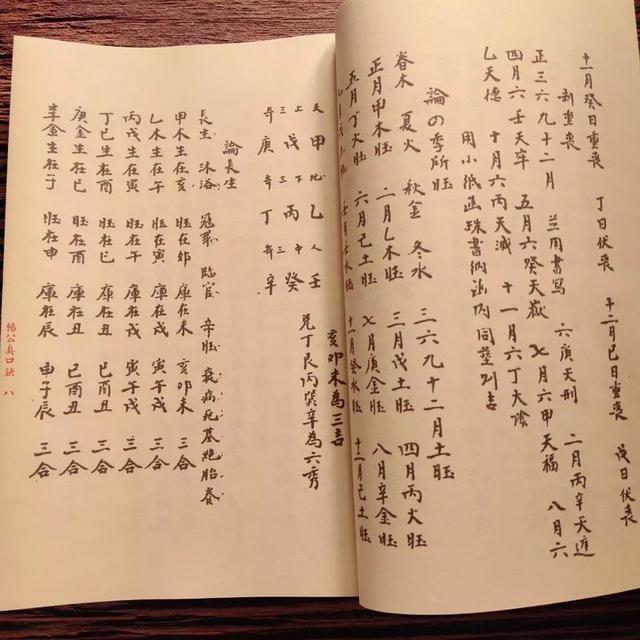 十一月癸日重喪 丁日伏喪 十二月巳日重喪 戊日伏喪
制重喪
正三六九十二月 並用書寫 六庚天刑 二月丙辛天延
四月六壬天牢 五月六癸天嶽 七月六甲天福 八月六
乙天德 十月六丙天滅 十一月六丁天陰
用小紙函珠書納函內同塟則吉
論の季所旺
春木 夏火 秋金 冬水 三六九十二月土旺
正月甲木旺 二月乙木旺 三月戊土旺 四月丙火旺
五月丁火旺 六月己土旺 七月庚金旺 八月辛金旺
月壬水旺 十一月癸水旺 十二月己土旺
亥卯未為三吉
兌丁艮丙巽辛為六秀
天 甲 地 乙 人 壬
上 戊 下 丙 中 癸
三 三 三
奇 庚 奇 丁 奇 辛
論長生
長生 沐浴 冠帶 臨官 帝旺 衰病死墓絕胎養
甲木生在亥 旺在卯 庫在未 亥卯未 三合
乙木生在午 旺在寅 庫在戌 寅午戌 三合
丙戊生在寅 旺在午 庫在戌 寅午戌 三合
丁巳生在酉 旺在巳 庫在丑 巳酉丑 三合
庚金生在巳 旺在酉 庫在丑 巳酉丑 三合
辛金生在子 旺在申 庫在辰 申子辰 三合
楊公真口訣 八